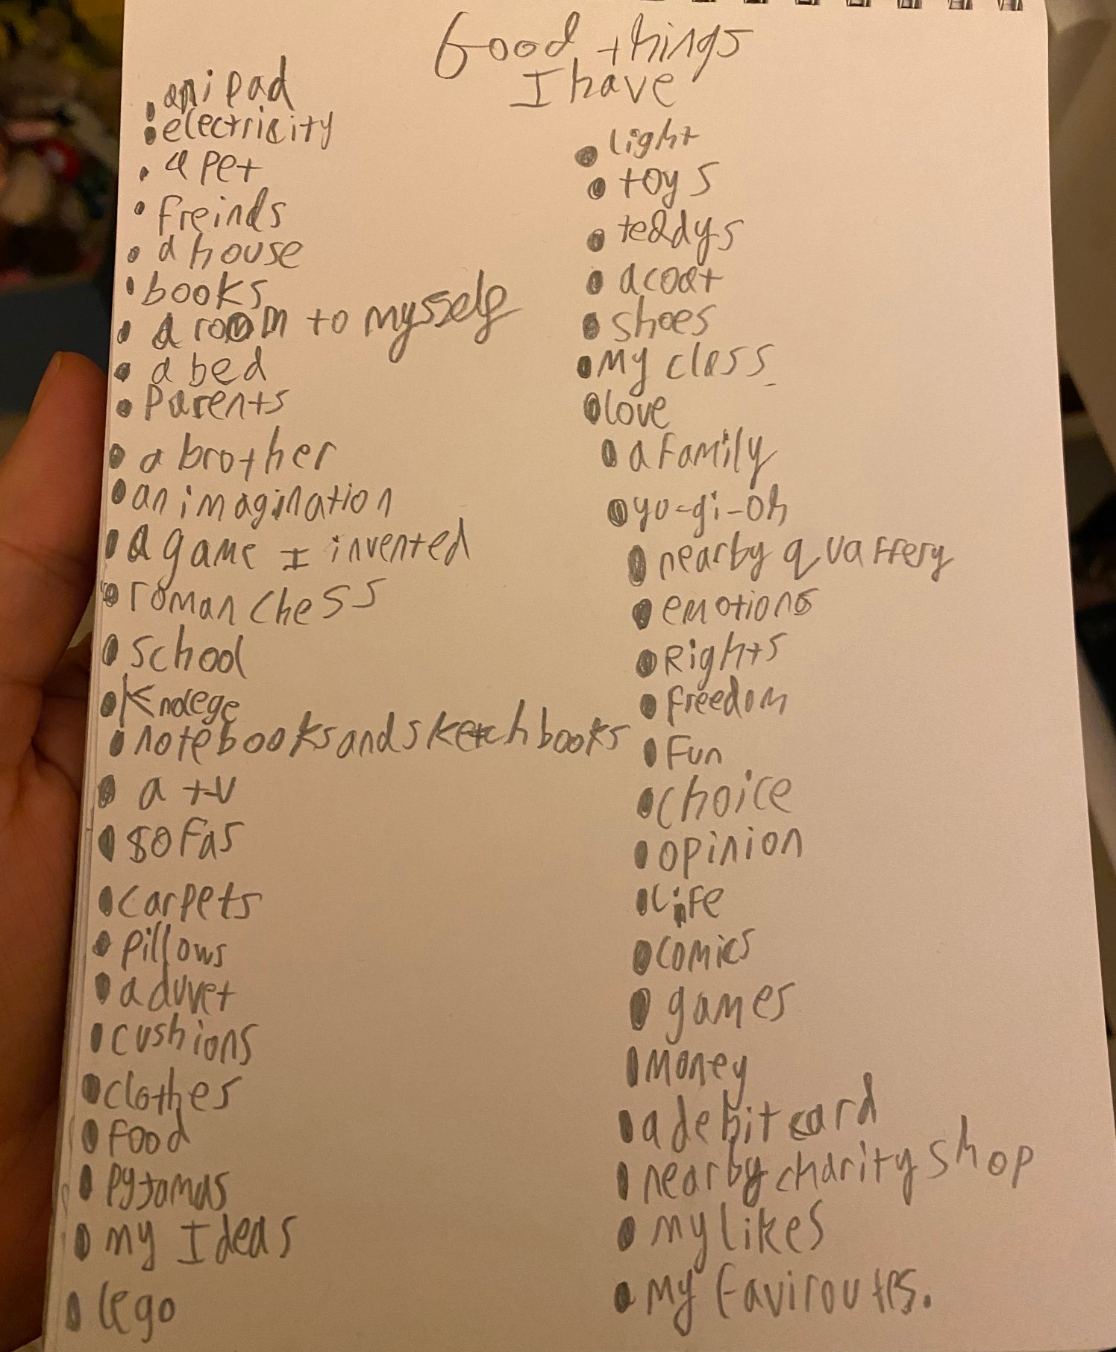 Good things
I have
• an ipad
• electricity
• a pet
• freinds
• a house
• books
• a room to mysself
• a bed
• Parents
• a brother
• an imagination
• a game I invented
• roman chess
• school
• Knolege
• notebooks and sketchbooks
• a tv
• sofas
• carpets
• pillows
• a duvet
• cushions
• clothes
• food
• pyjamas
• my Ideas
• lego
• light
• toys
• teddys
• a coat
• shoes
• my class
• love
• a family
• yu-gi-oh
• nearby
• emotions
• Rights
• freedom
• Fun
• choice
• opinion
• life
• comics
• games
• money
• a debit card
• nearby charity shop
• my likes
• my faviroutes.